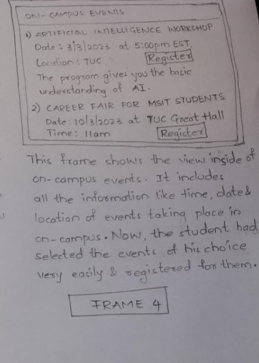 ON-CAMPUS EVENTS
1) ARTIFICIAL INTELLIGENCE WORKSHOP
Date: 3/3/2023 at 5:00pm EST
Location: TUC Register
The program gives you the basic
understanding of AI.
2) CAREER FAIR FOR MSIT STUDENTS
Date: 10/3/2023 at TUC Great Hall
Time: 11am Register
This frame shows the view inside of
on-campus events. It includes
all the information like time, date &
location of events taking place in
on-campus. Now, the student had
selected the events of his choice
very easily & registered for them.
FRAME 4